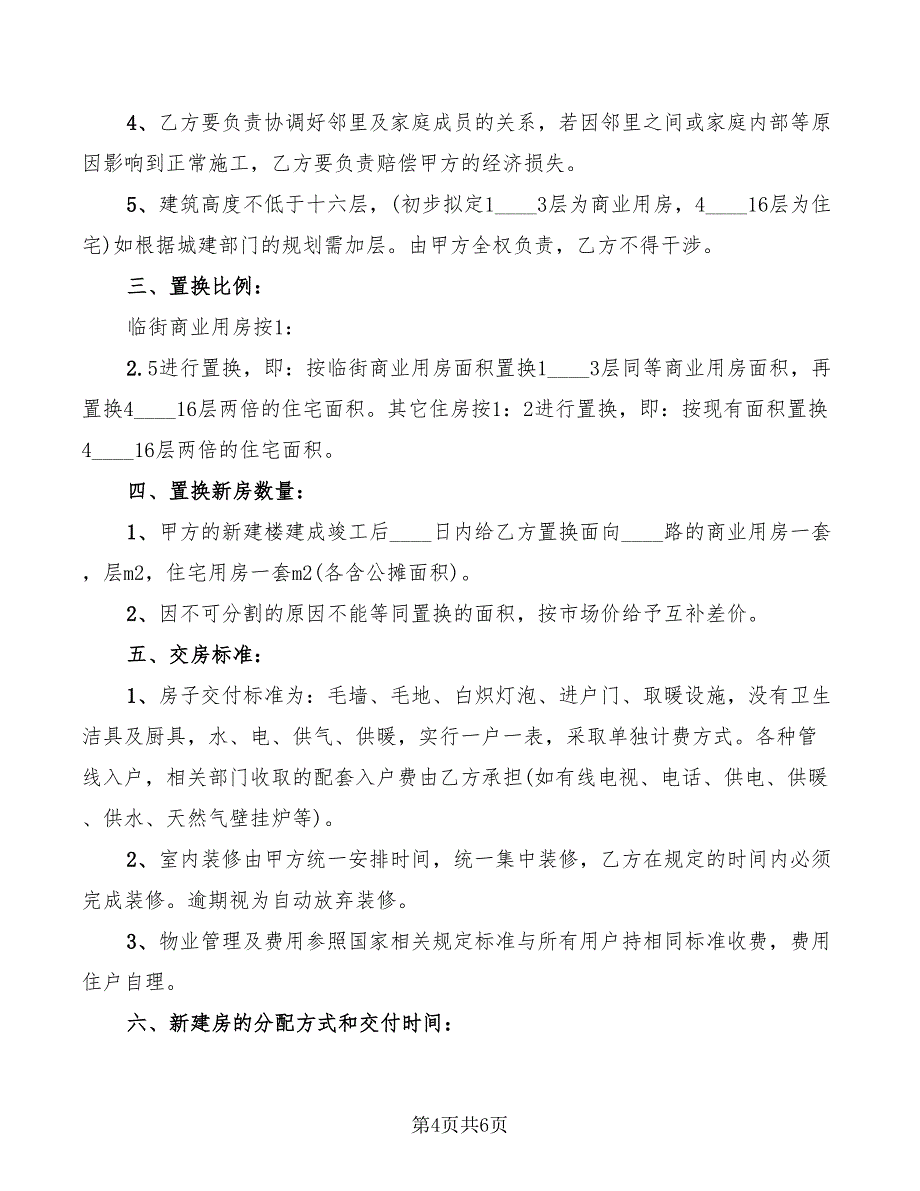 4、乙方要负责协调好邻里及家庭成员的关系，若因邻里之间或家庭内部等原
因影响到正常施工，乙方要负责赔偿甲方的经济损失。
5、建筑高度不低于十六层，(初步拟定1____3层为商业用房，4____16层为住
宅)如根据城建部门的规划需加层。由甲方全权负责，乙方不得干涉。
三、置换比例：
临街商业用房按1：
2.5进行置换，即：按临街商业用房面积置换1____3层同等商业用房面积，再
置换4____16层两倍的住宅面积。其它住房按1：2进行置换，即：按现有面积置换
4____16层两倍的住宅面积。
四、置换新房数量：
1、甲方的新建楼建成竣工后____日内给乙方置换面向____路的商业用房一套
，层m2，住宅用房一套m2(各含公摊面积)。
2、因不可分割的原因不能等同置换的面积，按市场价给予互补差价。
五、交房标准：
1、房子交付标准为：毛墙、毛地、白炽灯泡、进户门、取暖设施，没有卫生
洁具及厨具，水、电、供气、供暖，实行一户一表，采取单独计费方式。各种管
线入户，相关部门收取的配套入户费由乙方承担(如有线电视、电话、供电、供暖
、供水、天然气壁挂炉等)。
2、室内装修由甲方统一安排时间，统一集中装修，乙方在规定的时间内必须
完成装修。逾期视为自动放弃装修。
3、物业管理及费用参照国家相关规定标准与所有用户持相同标准收费，费用
住户自理。
六、新建房的分配方式和交付时间：
第4页共6页